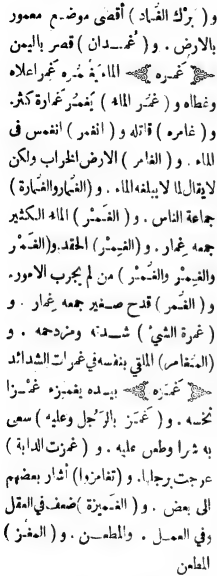 و ( بَرْك الغُماد ) أقصى موضع معمور
بالارض . و ( غُمْدان ) قصر باليمن
غَمَره الماءُ يَغْمُره غَمْراً علاه
وغطاه و ( غَمُر الماءُ ) يَغْمُر غَمَارة كثر .
و ( غامره ) قاتله و ( انغمر ) انغمس فى
الماء . و ( الغامر ) الارض الخراب ولكن
لايقال لما لايبلغه الماء . و ( الغُمار والغُمارة )
جماعة الناس . و ( الغَمْر ) الماء الكثير
جمعه غِمار . و ( الغِمْر ) الحقد و ( الغَمْر
والغِمْر والغُمْر ) من لم يجرب الامور .
و ( الغُمَر ) قدح صغير جمعه غِمار . و
( غمرة الشئ ) شدته ومزدحمه . و
( المتغامر ) الملقي بنفسه في غمرات الشدائد
غَمَزه بيده يغمِزه غَمْزا
نخسه . و ( غَمَز بالرَجُل وعليه ) سعى
به شرا وطعن عليه . و ( غمزت الدابة )
عرجت برجلها . و ( تغامزوا ) أشار بعضهم
الى بعض . و ( الغَميزة ) ضعف في العقل
وفي العمل . والمطعن . و ( المغمز )
المطعن